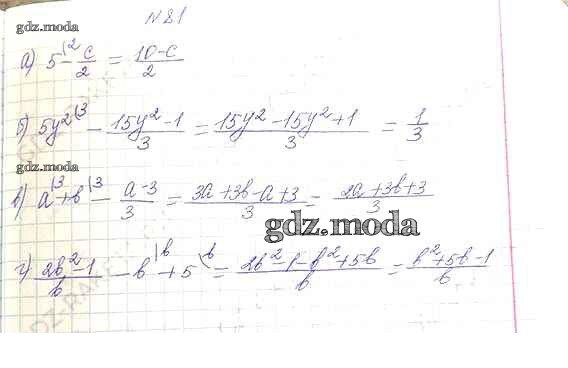 № 81
gdz.moda
а) 5 |2 - c/2 = 10-c/2
б) 5y² |3 - 15y²-1/3 = 15y²-15y²+1/3 = 1/3
gdz.moda
в) a |3 + b |3 - a-3/3 = 3a+3b-a+3/3 = 2a+3b+3/3
gdz.moda
г) 2b²-1/b - b |b + 5 |b = 2b²-1-b²+5b/b = b²+5b-1/b